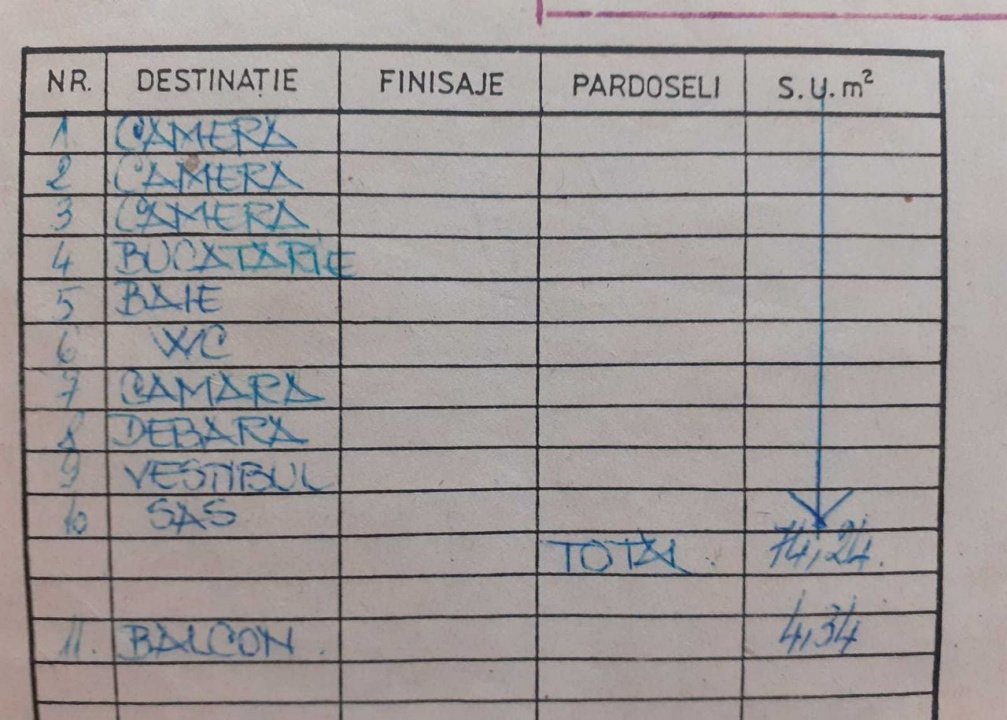 NR. DESTINAȚIE FINISAJE PARDOSELI S.U.m²
1. CAMERA
2 CAMERA
3 CAMERA
4 BUCATARIE
5 BAIE
6 WC
7 CAMARA
8 DEBARA
9 VESTIBUL
10 SAS
TOTAL. 74,24.
11. BALCON. 4,34